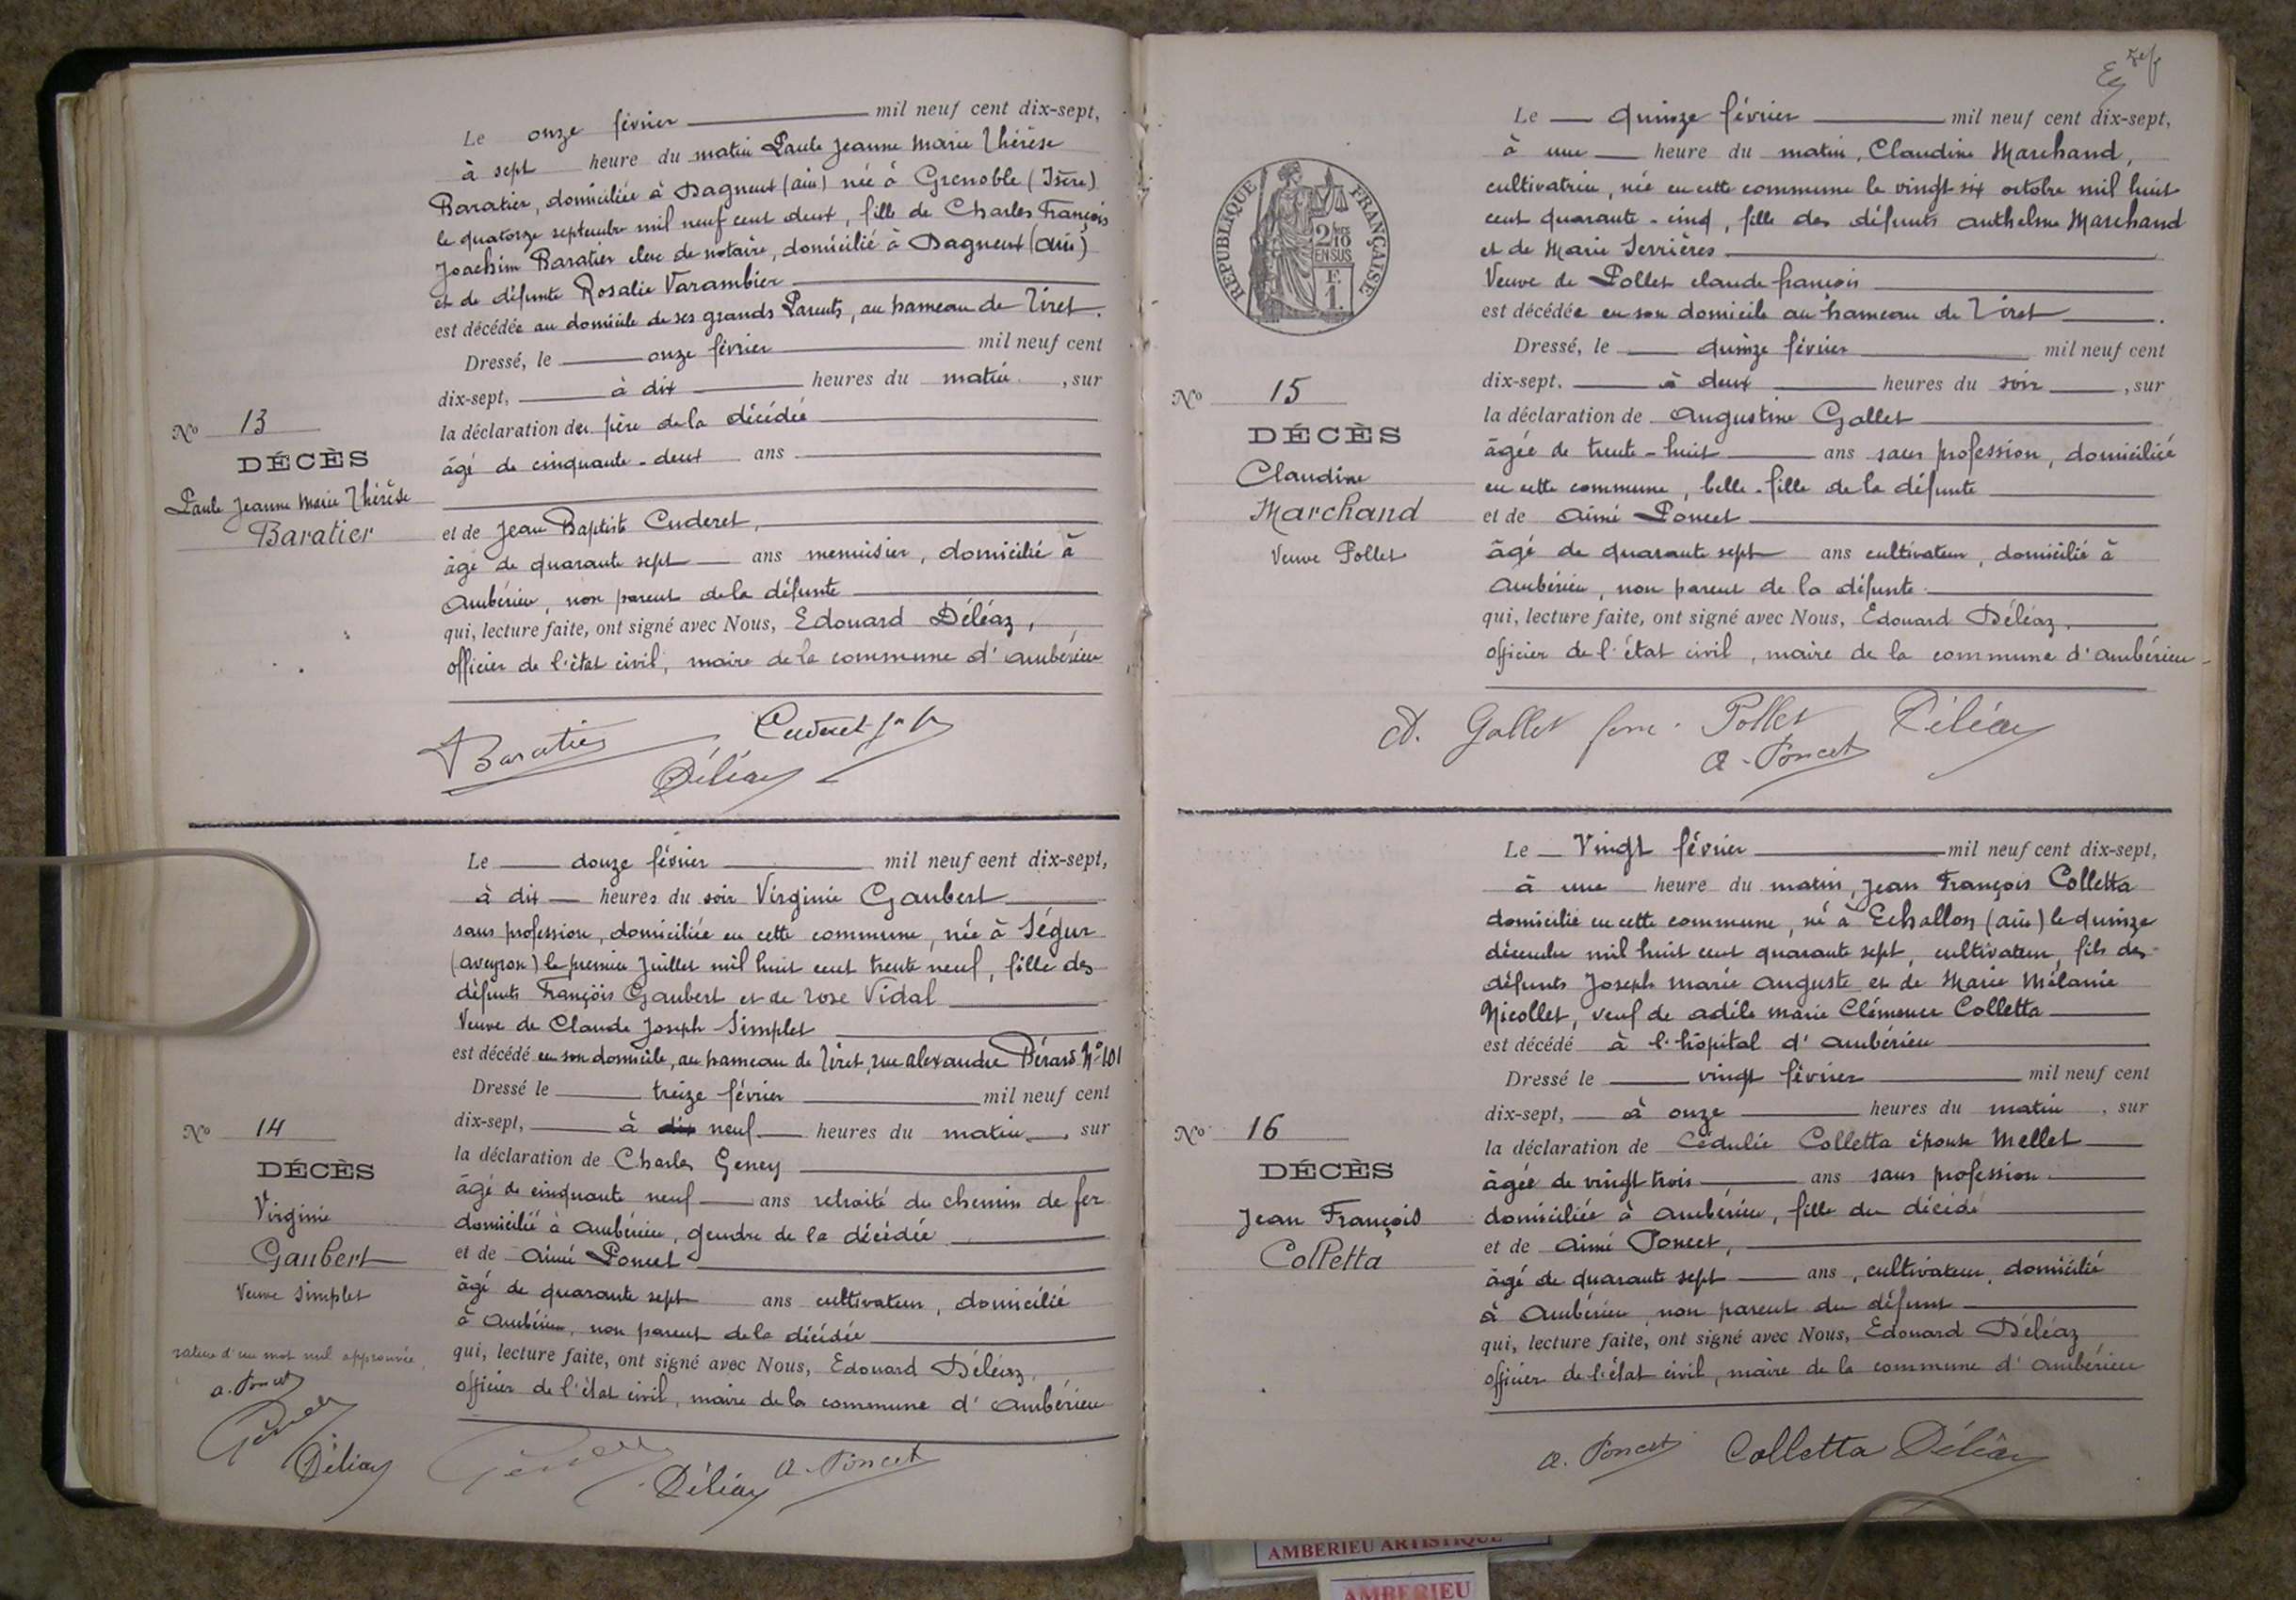 Le onze février mil neuf cent dix-sept,
à sept heure du matin Paule Jeanne Marie Thérèse
Baratier, domiciliée à Dagneux (Ain) née à Grenoble (Isère)
le quatorze septembre mil neuf cent deux, fille de Charles François
Joachim Baratier clerc de notaire, domicilié à Dagneux (Ain)
et de défunte Rosalie Varambier
est décédée au domicile de ses grands Parents, au hameau de Tiret.
Dressé, le onze février mil neuf cent
dix-sept, à dix heures du matin, sur
la déclaration du père de la décédée
âgé de cinquante-deux ans
et de Jean Baptiste Cuderet,
âgé de quarante sept ans menuisier, domicilié à
Ambérieu, non parent de la défunte
qui, lecture faite, ont signé avec Nous, Edouard Déléaz,
officier de l'état civil, maire de la commune d'Ambérieu
No 13
DÉCÈS
Paule Jeanne Marie Thérèse
Baratier
Baratier Cuderet
Déléaz
Le douze février mil neuf cent dix-sept,
à dix heures du soir Virginie Gaubert
sans profession, domiciliée en cette commune, née à Ségur
(Aveyron) le premier Juillet mil huit cent trente neuf, fille des
défunts François Gaubert et de Rose Vidal
Veuve de Claude Joseph Simplet
est décédé en son domicile, au hameau de Tiret, rue Alexandre Bérard No 101
Dressé le treize février mil neuf cent
dix-sept, à dix neuf heures du matin, sur
la déclaration de Charles Geney
âgé de cinquante neuf ans retraité du chemin de fer
domicilié à Ambérieu, gendre de la décédée
et de Aimé Poncet
âgé de quarante sept ans cultivateur, domicilié
à Ambérieu, non parent de la décédée
qui, lecture faite, ont signé avec Nous, Edouard Déléaz,
officier de l'état civil, maire de la commune d'Ambérieu
No 14
DÉCÈS
Virginie
Gaubert
Veuve Simplet
rature d'un mot nul approuvée
a. Poncet
Déléaz
Déléaz a. Poncet
Le quinze février mil neuf cent dix-sept,
à une heure du matin, Claudine Marchand,
cultivatrice, née en cette commune le vingt six octobre mil huit
cent quarante-cinq, fille des défunts Anthelme Marchand
et de Marie Serrières
Veuve de Pollet Claude françois
est décédée en son domicile au hameau de Tiret.
Dressé, le quinze février mil neuf cent
dix-sept, à deux heures du soir, sur
la déclaration de Augustine Gallet
âgée de trente-huit ans sans profession, domiciliée
en cette commune, belle-fille de la défunte
et de Aimé Poncet
âgé de quarante sept ans cultivateur, domicilié à
Ambérieu, non parent de la défunte
qui, lecture faite, ont signé avec Nous, Edouard Déléaz,
officier de l'état civil, maire de la commune d'Ambérieu
REPUBLIQUE FRANÇAISE
2/10
EN SUS
F.
1.
No 15
DÉCÈS
Claudine
Marchand
Veuve Pollet
A. Gallet fme Pollet Déléaz
a. Poncet
Le Vingt février mil neuf cent dix-sept,
à une heure du matin, Jean François Colletta
domicilié en cette commune, né à Echallon (Ain) le quinze
décembre mil huit cent quarante sept, cultivateur, fils des
défunts Joseph Marie Auguste et de Marie Mélanie
Nicollet, veuf de Adèle Marie Clémence Colletta
est décédé à l'hôpital d'Ambérieu
Dressé le vingt février mil neuf cent
dix-sept, à onze heures du matin, sur
la déclaration de Cédulie Colletta épouse Mellet
âgée de vingt trois ans sans profession
domiciliée à Ambérieu, fille du décédé
et de Aimé Poncet,
âgé de quarante sept ans, cultivateur, domicilié
à Ambérieu, non parent du défunt
qui, lecture faite, ont signé avec Nous, Edouard Déléaz
officier de l'état civil, maire de la commune d'Ambérieu
No 16
DÉCÈS
Jean François
Colletta
a. Poncet Colletta Déléaz
AMBERIEU ARTISTIQUE
AMBERIEU